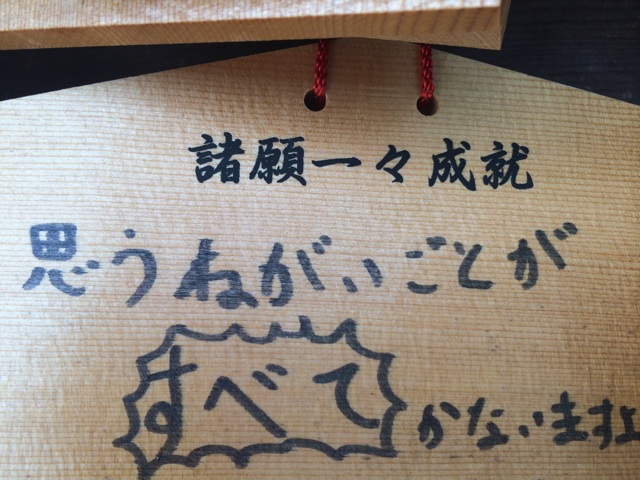 諸願一々成就
思うねがいごとが
すべて
かないますよ